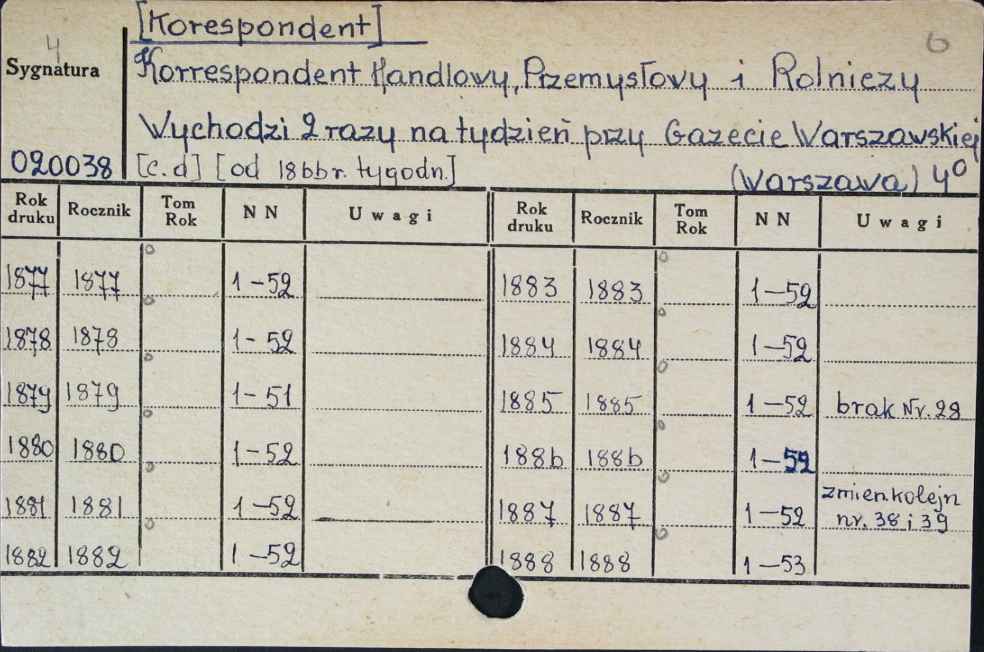 [Korespondent]
4
6
Sygnatura
Korrespondent Handlowy, Przemysłowy i Rolniczy
Wychodzi 2 razy na tydzień przy Gazecie Warszawskiej
020038
[c.d] [od 1866r. tygodn.]
(Warszawa) 4º
Rok druku Rocznik Tom Rok NN Uwagi Rok druku Rocznik Tom Rok NN Uwagi
1877 1877 1-52 1883 1883 1-52
1878 1878 1-52 1884 1884 1-52
1879 1879 1-51 1885 1885 1-52 brak Nr. 28
1880 1880 1-52 1886 1886 1-52
1881 1881 1-52 1887 1887 1-52 zmien kolejn nr. 38 i 39
1882 1882 1-52 1888 1888 1-53